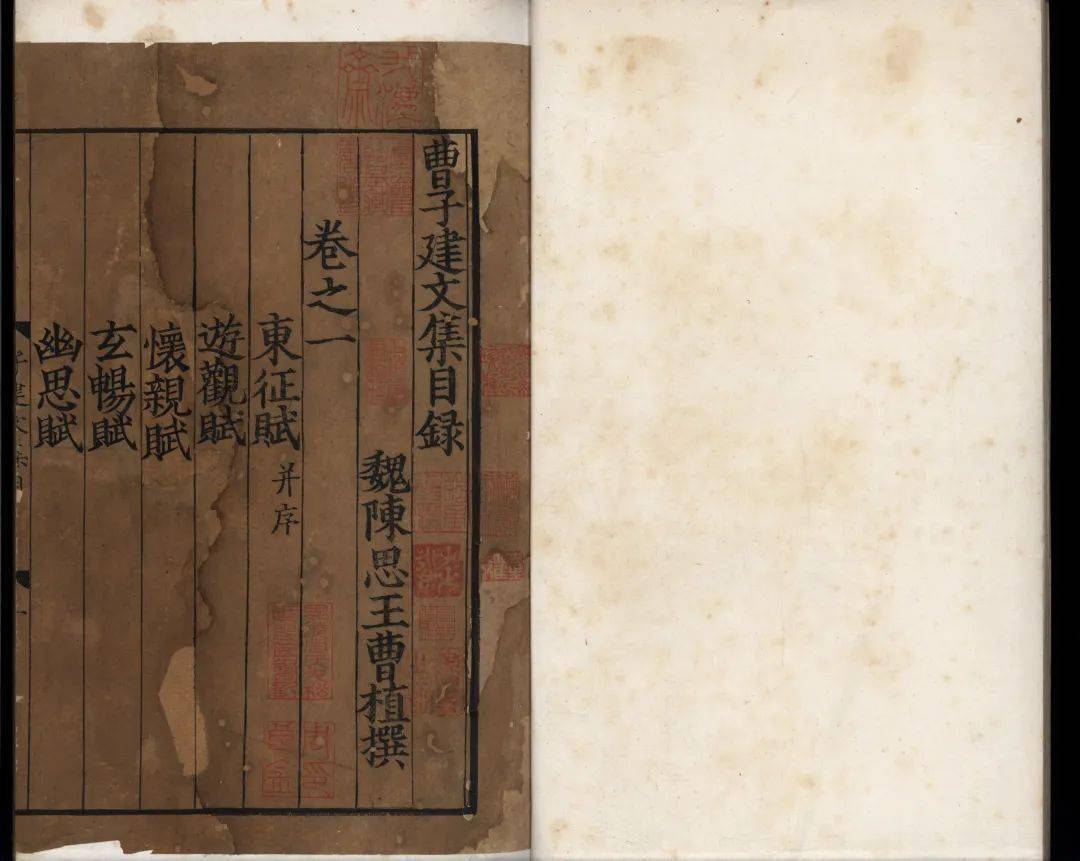 曹子建文集目録
魏陳思王曹植撰
卷之一
東征賦 并序
遊觀賦
懷親賦
玄暢賦
幽思賦